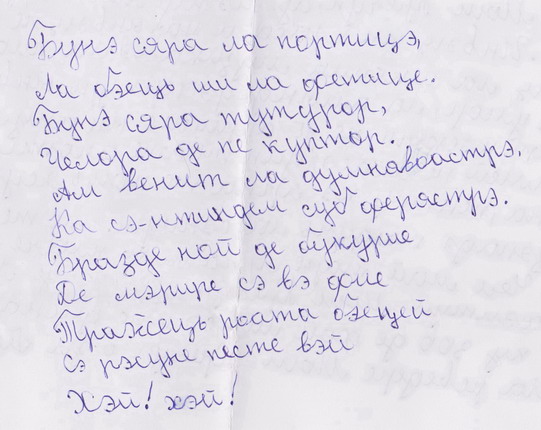 Бунэ сяра ла портицэ,
Ла бэець ши ла фетице.
Бунэ сяра тутурор,
Челора де пе куптор.
Ам венит ла думнавоастрэ,
Ка сэ-нтиндем суб ферястрэ.
Бразде ной де букурие
Де мэрире сэ вэ фие
Тражець роата бэецей
Сэ рэсуне песте вэй
Хэй! хэй!